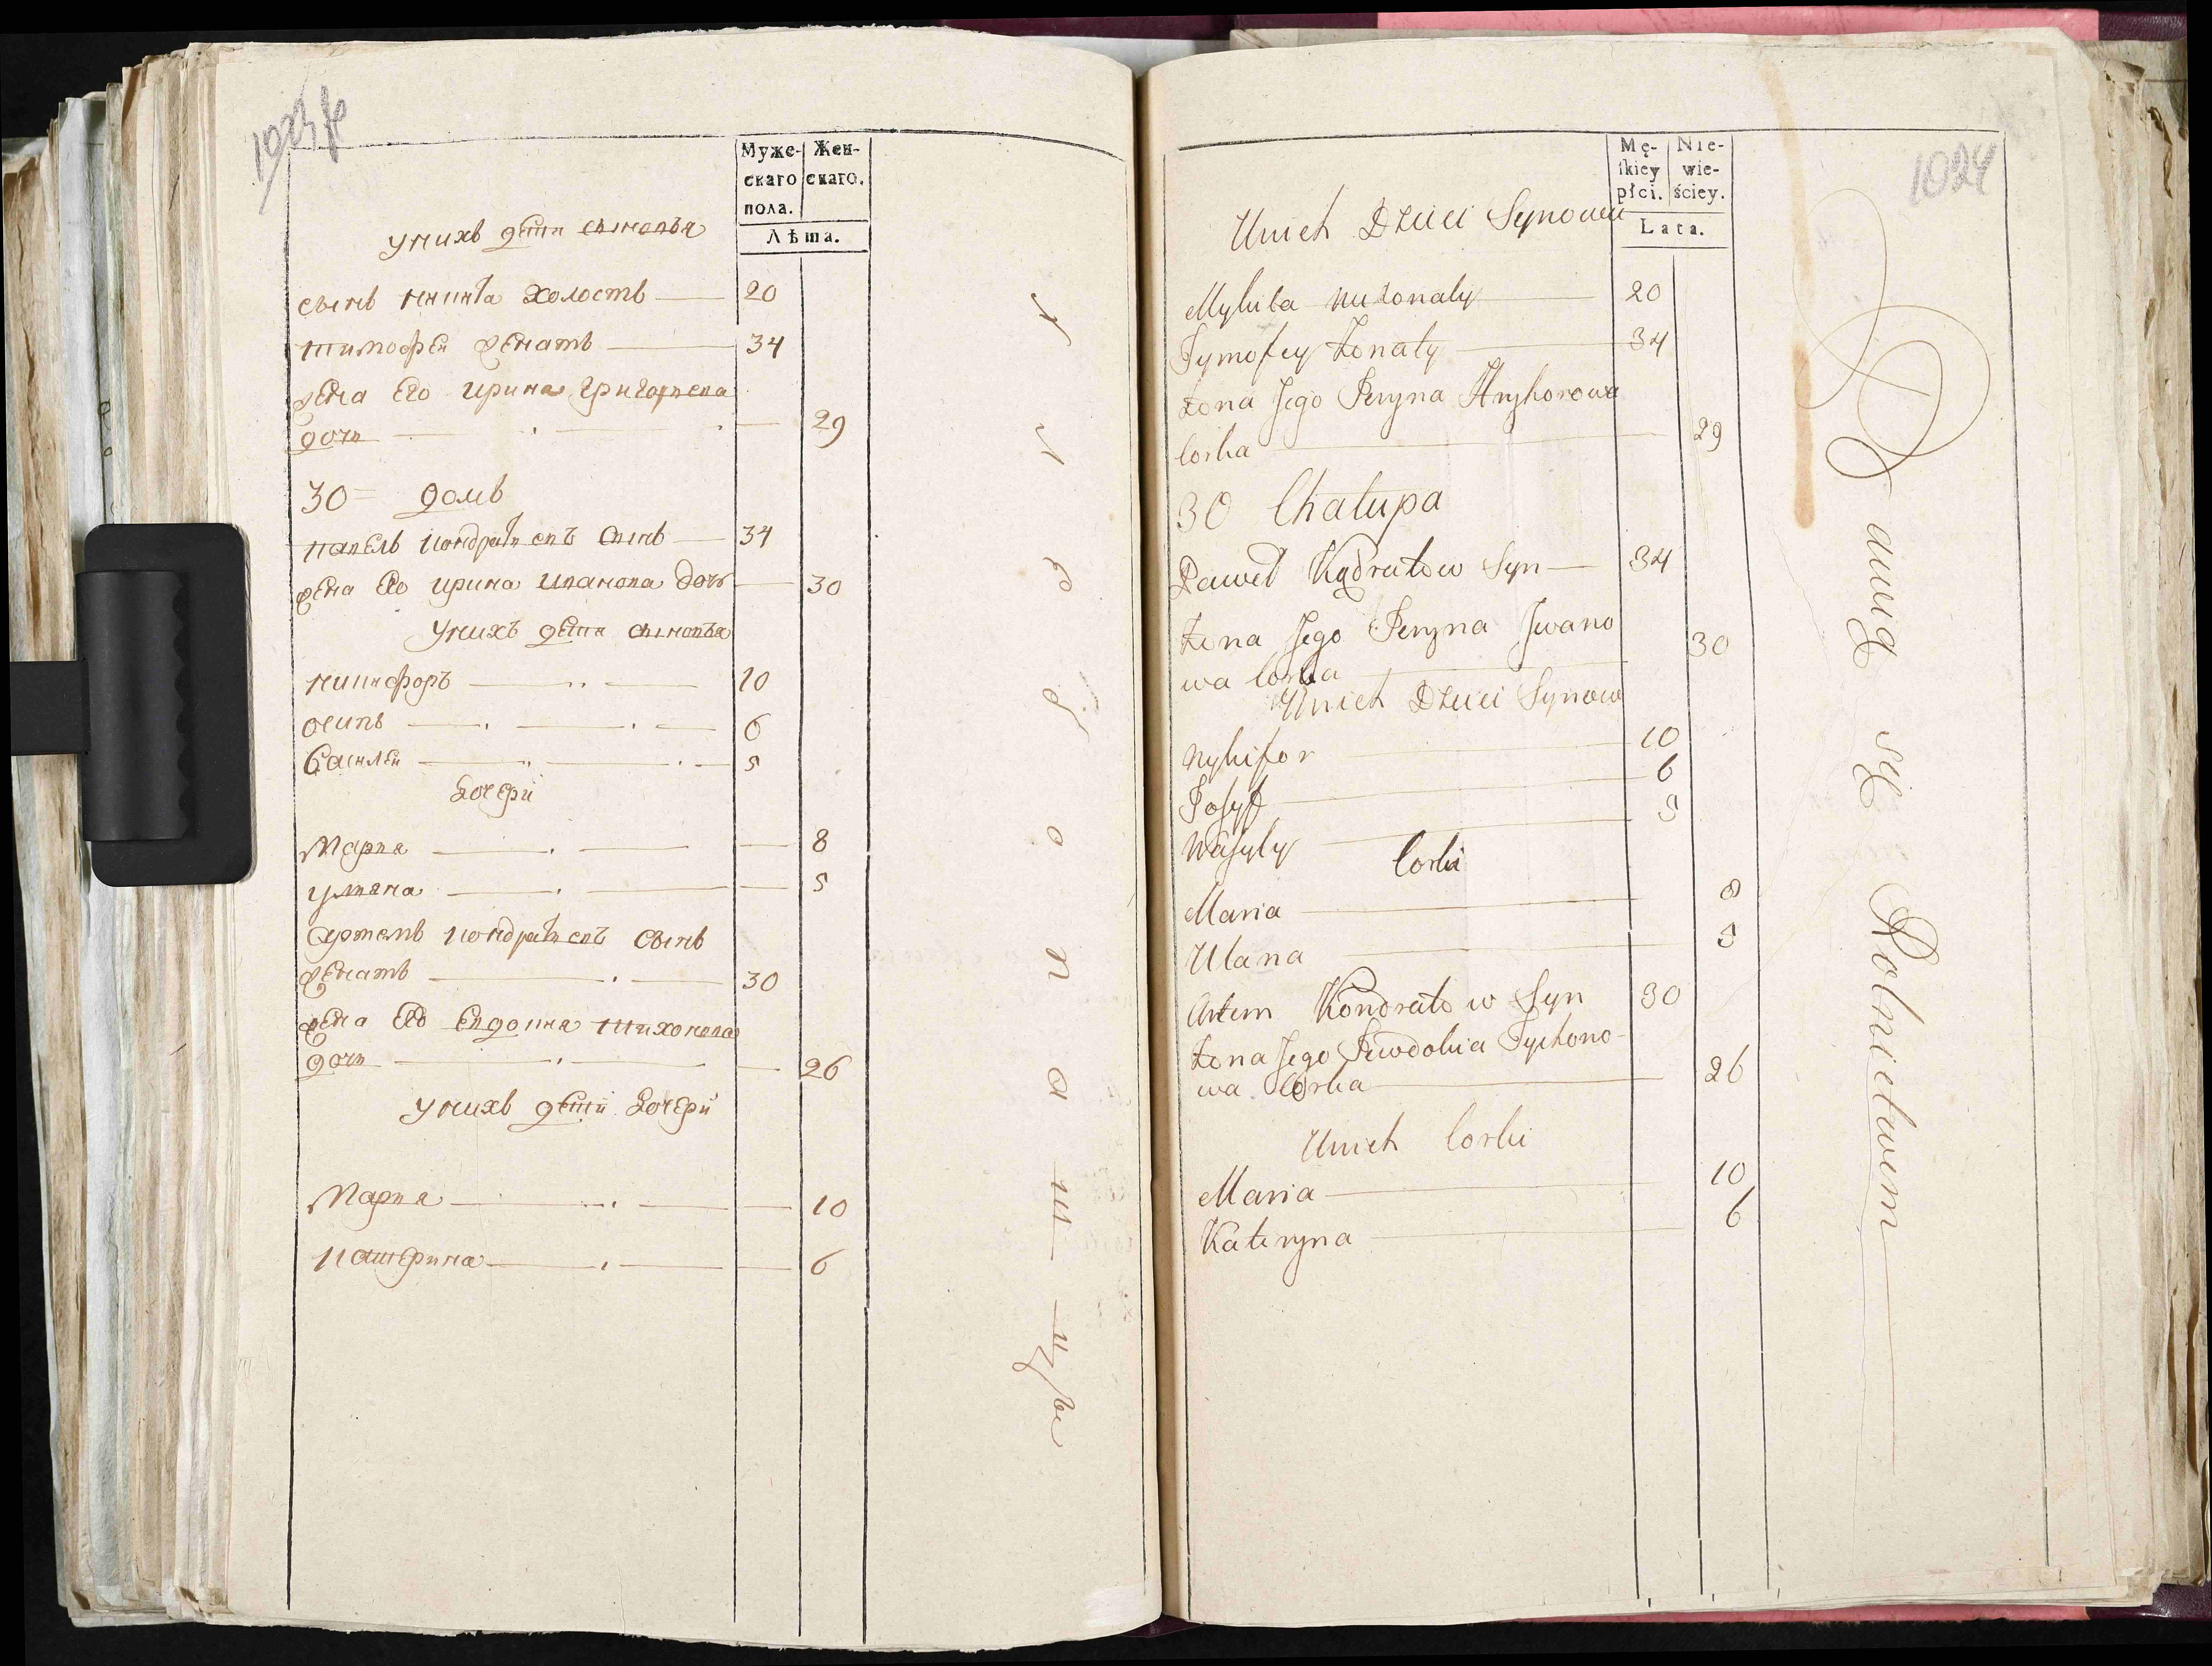 Муже-
скаго
пола.
Жен-
скаго.
Лѣта.
у нихъ дети сыновья
сынъ никита холостъ 20
тимофеи женатъ 34
жена его ирина григорьева
дочь 29
30 = домъ
павелъ кондратьевъ сынъ 34
жена его ирина иванова дочь 30
у нихъ дети сыновья
никифоръ 10
осипъ 6
василей 5
дочери
Марья 8
ульяна 5
артемъ кондратьевъ сынъ
женатъ 30
жена его евдокия тихонова
дочь 26
у нихъ дети дочери
Марья 10
катерина 6
1024
Mę-
skiey
płci.
Nie-
wieściey.
Lata.
U nich Dzieci Synowie
Mykita niezonaty 20
Tymofey Zonaty 34
Zona Jego Jeryna Hryhorowa
Corka 29
30 Chałupa
Paweł Kądratow Syn 34
Zona Jego Jeryna Jwano
wa Corka 30
U nich Dzieci Synow
Nykifor 10
Josyf 6
Wasyly 5
Corki
Maria 8
Ulana 5
Artem Kondratow Syn 30
Zona Jego Jewdokia Tychono-
wa Corka 26
U nich Corki
Maria 10
Kateryna 6
Bawią Się Rolnictwem